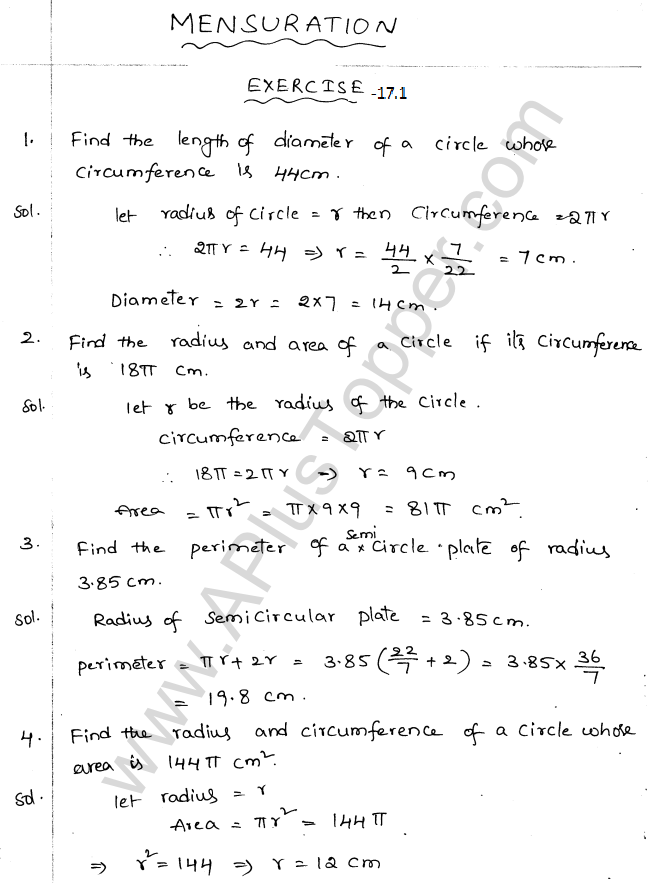 MENSURATION
EXERCISE -17.1
1. Find the length of diameter of a circle whose
circumference is 44cm.
Sol. let radius of circle = r then Circumference = 2πr
∴ 2πr = 44 ⇒ r = 44/2 × 7/22 = 7 cm.
Diameter = 2r = 2×7 = 14 cm.
2. Find the radius and area of a circle if its circumference
is 18π cm.
Sol. let r be the radius of the circle.
circumference = 2πr
∴ 18π = 2πr ⇒ r = 9 cm
Area = πr² = π×9×9 = 81π cm².
3. Find the perimeter of a semi circle plate of radius
3.85 cm.
Sol. Radius of semicircular plate = 3.85 cm.
perimeter = πr + 2r = 3.85 (22/7 + 2) = 3.85 × 36/7
= 19.8 cm.
4. Find the radius and circumference of a circle whose
area is 144π cm².
Sol. let radius = r
Area = πr² = 144π
⇒ r² = 144 ⇒ r = 12 cm
www.APlusTopper.com